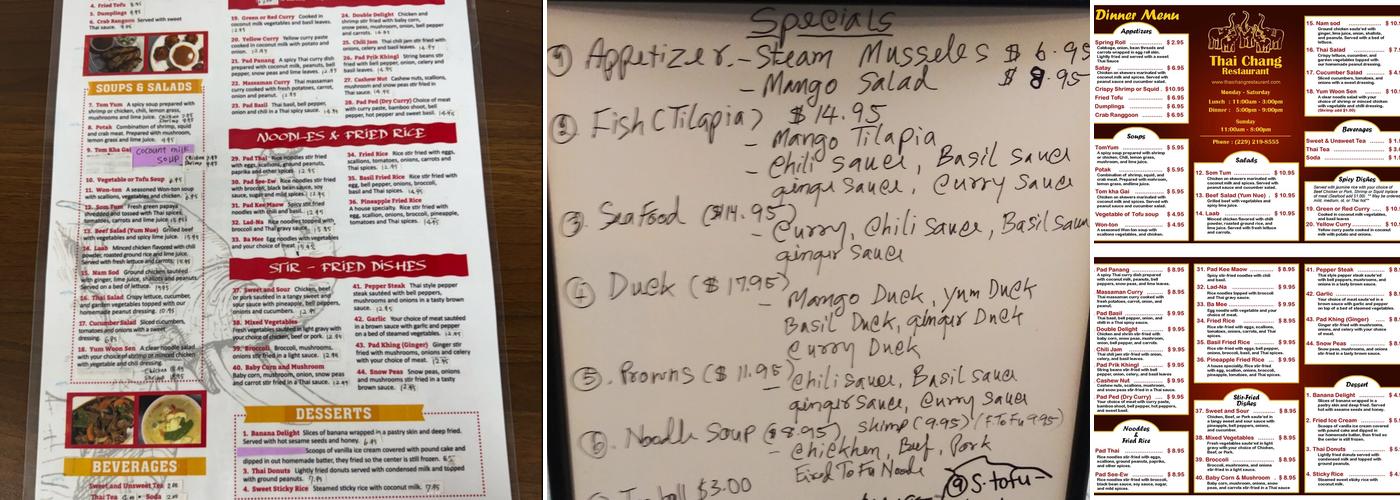 4. Fried Tofu 8.95
5. Dumplings
6. Crab Rangoons Served with sweet
Thai sauce.
SOUPS & SALADS
7. Tom Yum A spicy soup prepared with
shrimp or chicken, chili, lemon grass,
mushrooms, and lime juice.
8. Potak Combination of shrimp, squid
and crab meat. Prepared with mushrooms,
lemon grass and lime juice.
9. Tom Kha Gai
coconut milk
soup
10. Vegetable or Tofu Soup
11. Won-ton A seasoned Won-ton soup
with scallions, vegetables and chicken.
12. Som Tum Fresh green papaya
shredded and tossed with Thai spices,
tomatoes, carrots and lime juice
13. Beef Salad (Yum Nue) Grilled beef
with vegetables and spicy lime juice.
14. Laab Minced chicken flavored with chili
powder, roasted ground rice and lime juice.
Served with fresh lettuce and carrots.
15. Nam Sod Ground chicken sautéed
with ginger, lime juice, shallots and peanuts.
Served on a bed of lettuce.
16. Thai Salad Crispy lettuce, cucumber
and other vegetables topped with our
homemade peanut dressing.
17. Cucumber Salad Sliced cucumbers,
tomatoes and onions with a sweet
dressing.
18. Yum Woon Sen A clear noodle salad
with your choice of shrimp or minced chicken
with vegetable and chili dressing.
BEVERAGES
Sweet and Unsweet Tea
Thai Tea Soda
19. Green or Red Curry Cooked in
coconut milk vegetables and basil leaves.
20. Yellow Curry Yellow curry paste
cooked in coconut milk with potato and
onion.
21. Pad Panang A spicy Thai curry dish
prepared with coconut milk, peanuts, bell
pepper, snow peas and lime leaves.
22. Massaman Curry Thai massaman
curry cooked with fresh potatoes, carrot,
onion and peanut.
23. Pad Basil Thai basil, bell pepper,
onion and chili in a Thai spicy sauce.
24. Double Delight Chicken and
shrimp stir fried with baby corn,
snow peas, mushroom, onion, bell pepper
and carrots.
25. Chili Jam Thai chili jam stir fried with
onions, celery and basil leaves.
26. Pad Prik Khingl String beans stir
fried with bell pepper, onion, celery and
basil leaves.
27. Cashew Nut Cashew nuts, scallions,
mushroom and snow peas stir fried in
Thai sauce.
28. Pad Ped (Dry Curry) Choice of meat
with curry paste, bamboo shoot, bell
pepper, hot pepper and sweet basil.
NOODLES & FRIED RICE
29. Pad Thai Rice noodles stir fried
with eggs, scallions, ground peanuts,
paprika and other spices
30. Pad See-Ew Rice noodles stir fried with
broccoli, black bean sauce, soy
sauce, sugar and mild spices.
31. Pad Kee Maew Spicy noodles
with chili and basil.
32. Lad-Na Rice noodles topped with
broccoli and Thai gravy sauce.
33. Ba Mee Egg noodles with vegetables
and your choice of meat.
34. Fried Rice Rice stir fried with eggs,
scallions, tomatoes, onions, carrots and
Thai spices.
35. Basil Fried Rice Rice stir fried with
egg, bell pepper, onions, broccoli,
basil and Thai spices.
36. Pineapple Fried Rice
A house specialty. Rice stir fried with
egg, scallion, onions, broccoli, pineapple,
tomatoes and Thai spices.
STIR - FRIED DISHES
37. Sweet and Sour Chicken, beef
or pork sautéed in a tangy sweet and
sour sauce with pineapple, bell peppers,
onions and cucumbers.
38. Mixed Vegetables
Fresh vegetables sautéed in light gravy with
your choice of chicken, beef or pork.
39. Broccoli Broccoli, mushrooms,
onions stir fried in a light sauce.
40. Baby Corn and Mushroom
Baby corn, mushroom, onion, snow peas
and carrot stir fried in a Thai sauce.
41. Pepper Steak Thai style pepper
steak sautéed with bell peppers,
mushrooms and onions in a tasty brown
sauce.
42. Garlic Your choice of meat sautéed
in a brown sauce with garlic and pepper
on a bed of steamed vegetables.
43. Pad Khing (Ginger) Ginger stir
fried with mushrooms, onions and celery
with your choice of meat.
44. Snow Peas Snow peas, mushrooms
and onions stir fried in a tasty brown
sauce.
DESSERTS
1. Banana Delight Slices of banana wrapped in a pastry skin and deep fried.
Served with hot sesame seeds and honey.
Scoops of vanilla ice cream covered with pound cake and
dipped in our homemade batter, they fried so the center is still frozen.
3. Thai Donuts Lightly fried donuts served with condensed milk and topped
with ground peanuts. 7.95
4. Sweet Sticky Rice Steamed sticky rice with coconut milk. 7.95
Specials
① Appetizer. - Steam Mussels $ 6.95
- Mango Salad $ 8.95
② Fish (Tilapia) $14.95
- Mango Tilapia
- Chili sauce, Basil sauce
ginger sauce, Curry Sauce
③ Seafood ($14.95)
- Curry, Chili Sauce, Basil Sauce
ginger sauce
④ Duck ($17.95)
- Mango Duck, Yum Duck
Basil Duck, ginger Duck
Curry Duck
⑤. Prowns ($11.95)
- Chili sauce, Basil sauce
ginger sauce, Curry sauce
⑥. Noodle Soup ($8.95) Shimp (9.95) / (F.ToFu 9.95)
- Chickhen, Beef, Pork
Fried ToFu Noodle
$3.00
⑨ S. tofu -
Dinner Menu
Appetizers
Spring Roll $ 2.95
Cabbage, onion, bean threads and
carrots wrapped in egg roll skin.
Lightly fried and served with a
sweet Thai sauce.
Satay $ 6.95
Chicken on skewers marinated
with coconut milk and spices. Served with
peanut sauce and cucumber salad.
Crispy Shrimp or Squid $10.95
Fried Tofu $ 6.95
Dumplings $ 6.95
Crab Ranggoon $ 6.95
Soups
TomYum $ 5.95
A spicy soup prepared with
shrimp or chicken, Chili, lemon grass,
mushroom, and lime juice.
Potak $ 5.95
Combination of shrimp, squid and
crab meat. Prepared with mushroom,
lemon grass and lime juice.
Tom kha Gai $ 5.95
Vegetable of Tofu soup $ 4.95
Won-ton $ 4.95
A seasoned Won Ton soup with
scallions, vegetables, and chicken.
Thai Chang
Restaurant
www.thaichangrestaurant.com
Monday - Saturday
Lunch : 11:00am - 3:00pm
Dinner : 5:00pm - 9:00pm
Sunday
11:00am - 8:00pm
Phone : (229) 219-8555
Salads
12. Som Tum $ 8.95
Chicken on skewers marinated with
coconut milk and spices. Served with
peanut sauce and cucumber salad.
13. Beef Salad (Yum Nue) $ 9.95
Grilled beef with vegetables and
spicy lime juice.
14. Laab $ 9.95
Minced chicken flavored with chili
powder, roasted ground rice, and
lime juice. Served with fresh lettuce
and carrots.
15. Nam sod
Ground chicken sautéed with
ginger, lime juice, onion, shallots,
and peanuts. Served with a bed of
lettuce.
16. Thai Salad
Crispy lettuce, cucumber, and
other vegetables topped with
our homemade peanut dressing.
17. Cucumber Salad
Sliced cucumbers, tomatoes, and
onions with a sweet dressing.
18. Yum Woon Sen
A clear noodle salad with your
choice of shrimp or minced chicken
with vegetable and chili dressing.
(Shrimp add $1.00)
Beverages
Sweet & Unsweet Tea
Thai Tea
Soda
Spicy Dishes
19. Green or Red Curry
Cooked in coconut milk, vegetables
and basil leaves.
20. Yellow Curry
Yellow curry paste cooked in coconut
milk with potato and onions.
Pad Panang $ 8.95
A spicy Thai curry dish prepared
with coconut milk, peanuts, bell
peppers, snow peas, and lime leaves.
Massaman Curry $ 8.95
Thai massaman curry cooked with
fresh potatoes, carrot, onion, and
peanut.
Pad Basil $ 8.95
Thai basil, bell pepper, onion, and
chili in a Thai spicy sauce.
Double Delight $ 9.95
Chicken and shrimp stir-fried with
baby corn, snow peas, mushroom,
onion, bell pepper, and carrots.
Chili Jam $ 8.95
Thai chili jam stir-fried with onion,
celery, and basil leaves.
Pad Prik Khingl $ 8.95
String beans stir-fried with bell
pepper, onion, celery, and basil leaves
Cashew Nut $ 8.95
Cashew nuts, scallions, mushroom,
and snow peas stir-fried in Thai sauce.
Pad Ped (Dry Curry) $ 8.95
Choice of meat with curry paste,
bamboo shoot, bell pepper, hot peppers,
and sweet basil.
Noodles
&
Fried Rice
Pad Thai $ 8.95
Rice noodles stir-fried with eggs,
scallions, ground peanuts, paprika,
and other spices.
Pad See-Ew $ 8.95
Rice noodles stir-fried with broccoli,
black bean sauce, soy sauce, sugar,
and mild spices.
31. Pad Kee Maow $ 8.95
Spicy stir-fried noodles with chili
and basil.
32. Lad-Na $ 8.95
Rice noodles topped with broccoli
and Thai gravy sauce.
33. Ba Mee $ 8.95
Egg noodles with vegetable and
your choice of meat.
34. Fried Rice $ 8.95
Rice stir-fried with eggs, scallions,
tomatoes, onions, carrots, and Thai
spices.
35. Basil Fried Rice $ 8.95
Rice stir-fried with egg, bell peppers,
onions, broccoli, basil, and Thai spices.
36. Pineapple Fried Rice $ 9.95
A house specialty. Rice stir-fried with
egg, scallion, onions, broccoli,
pineapple, tomatoes, and Thai spices.
Stir-Fried
Dishes
37. Sweet and Sour $ 8.95
Chicken, Beef, or Pork sautéed in
a tangy sweet and sour sauce with
pineapple, bell peppers, onions,
and cucumbers.
38. Mixed Vegetables $ 8.95
Fresh vegetables sautéed in light
gravy with your choice of Chicken,
Beef, or Pork.
39. Broccoli $ 8.95
Broccoli, mushrooms, and onions
stir-fried in a light sauce.
40. Baby Corn & Mushroom $ 8.95
Baby corn, mushroom, onion, snow
peas, and carrot stir-fried in a Thai Sauce.
41. Pepper Steak
Thai style pepper steak sautéed
with bell peppers, mushrooms, and
onions in a tasty brown sauce.
42. Garlic
Your choice of meat sautéed in a
brown sauce with garlic and pepper
on top of a bed of steamed vegetables.
43. Pad Khing (Ginger)
Ginger stir-fried with mushrooms,
onions, and celery, with your choice
of meat.
44. Snow Peas
Snow peas, mushrooms, and onions
stir-fried in a tasty brown sauce.
Dessert
1. Banana Delight
Slices of banana wrapped in a
pastry skin and deep fried. Served
hot with sesame seeds and honey.
2. Fried Ice Cream
Scoops of vanilla ice cream
covered with pound cake and dipped
in our homemade batter, than fried so
the center is still frozen.
3. Thai Donuts
Lightly fried donuts served with
condensed milk and topped with
ground peanuts.
4. Sticky Rice
Steamed sticky rice with
coconut milk.